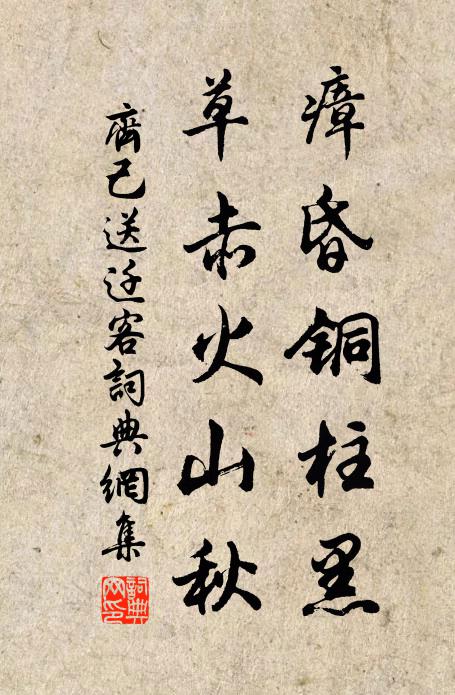 瘴昏铜柱黑
草赤火山秋
齊己送迁客詞典網集
詞典網印